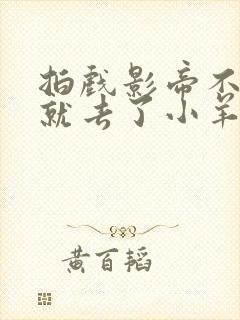 拍戏影帝不
就去了小羊
黄百韬